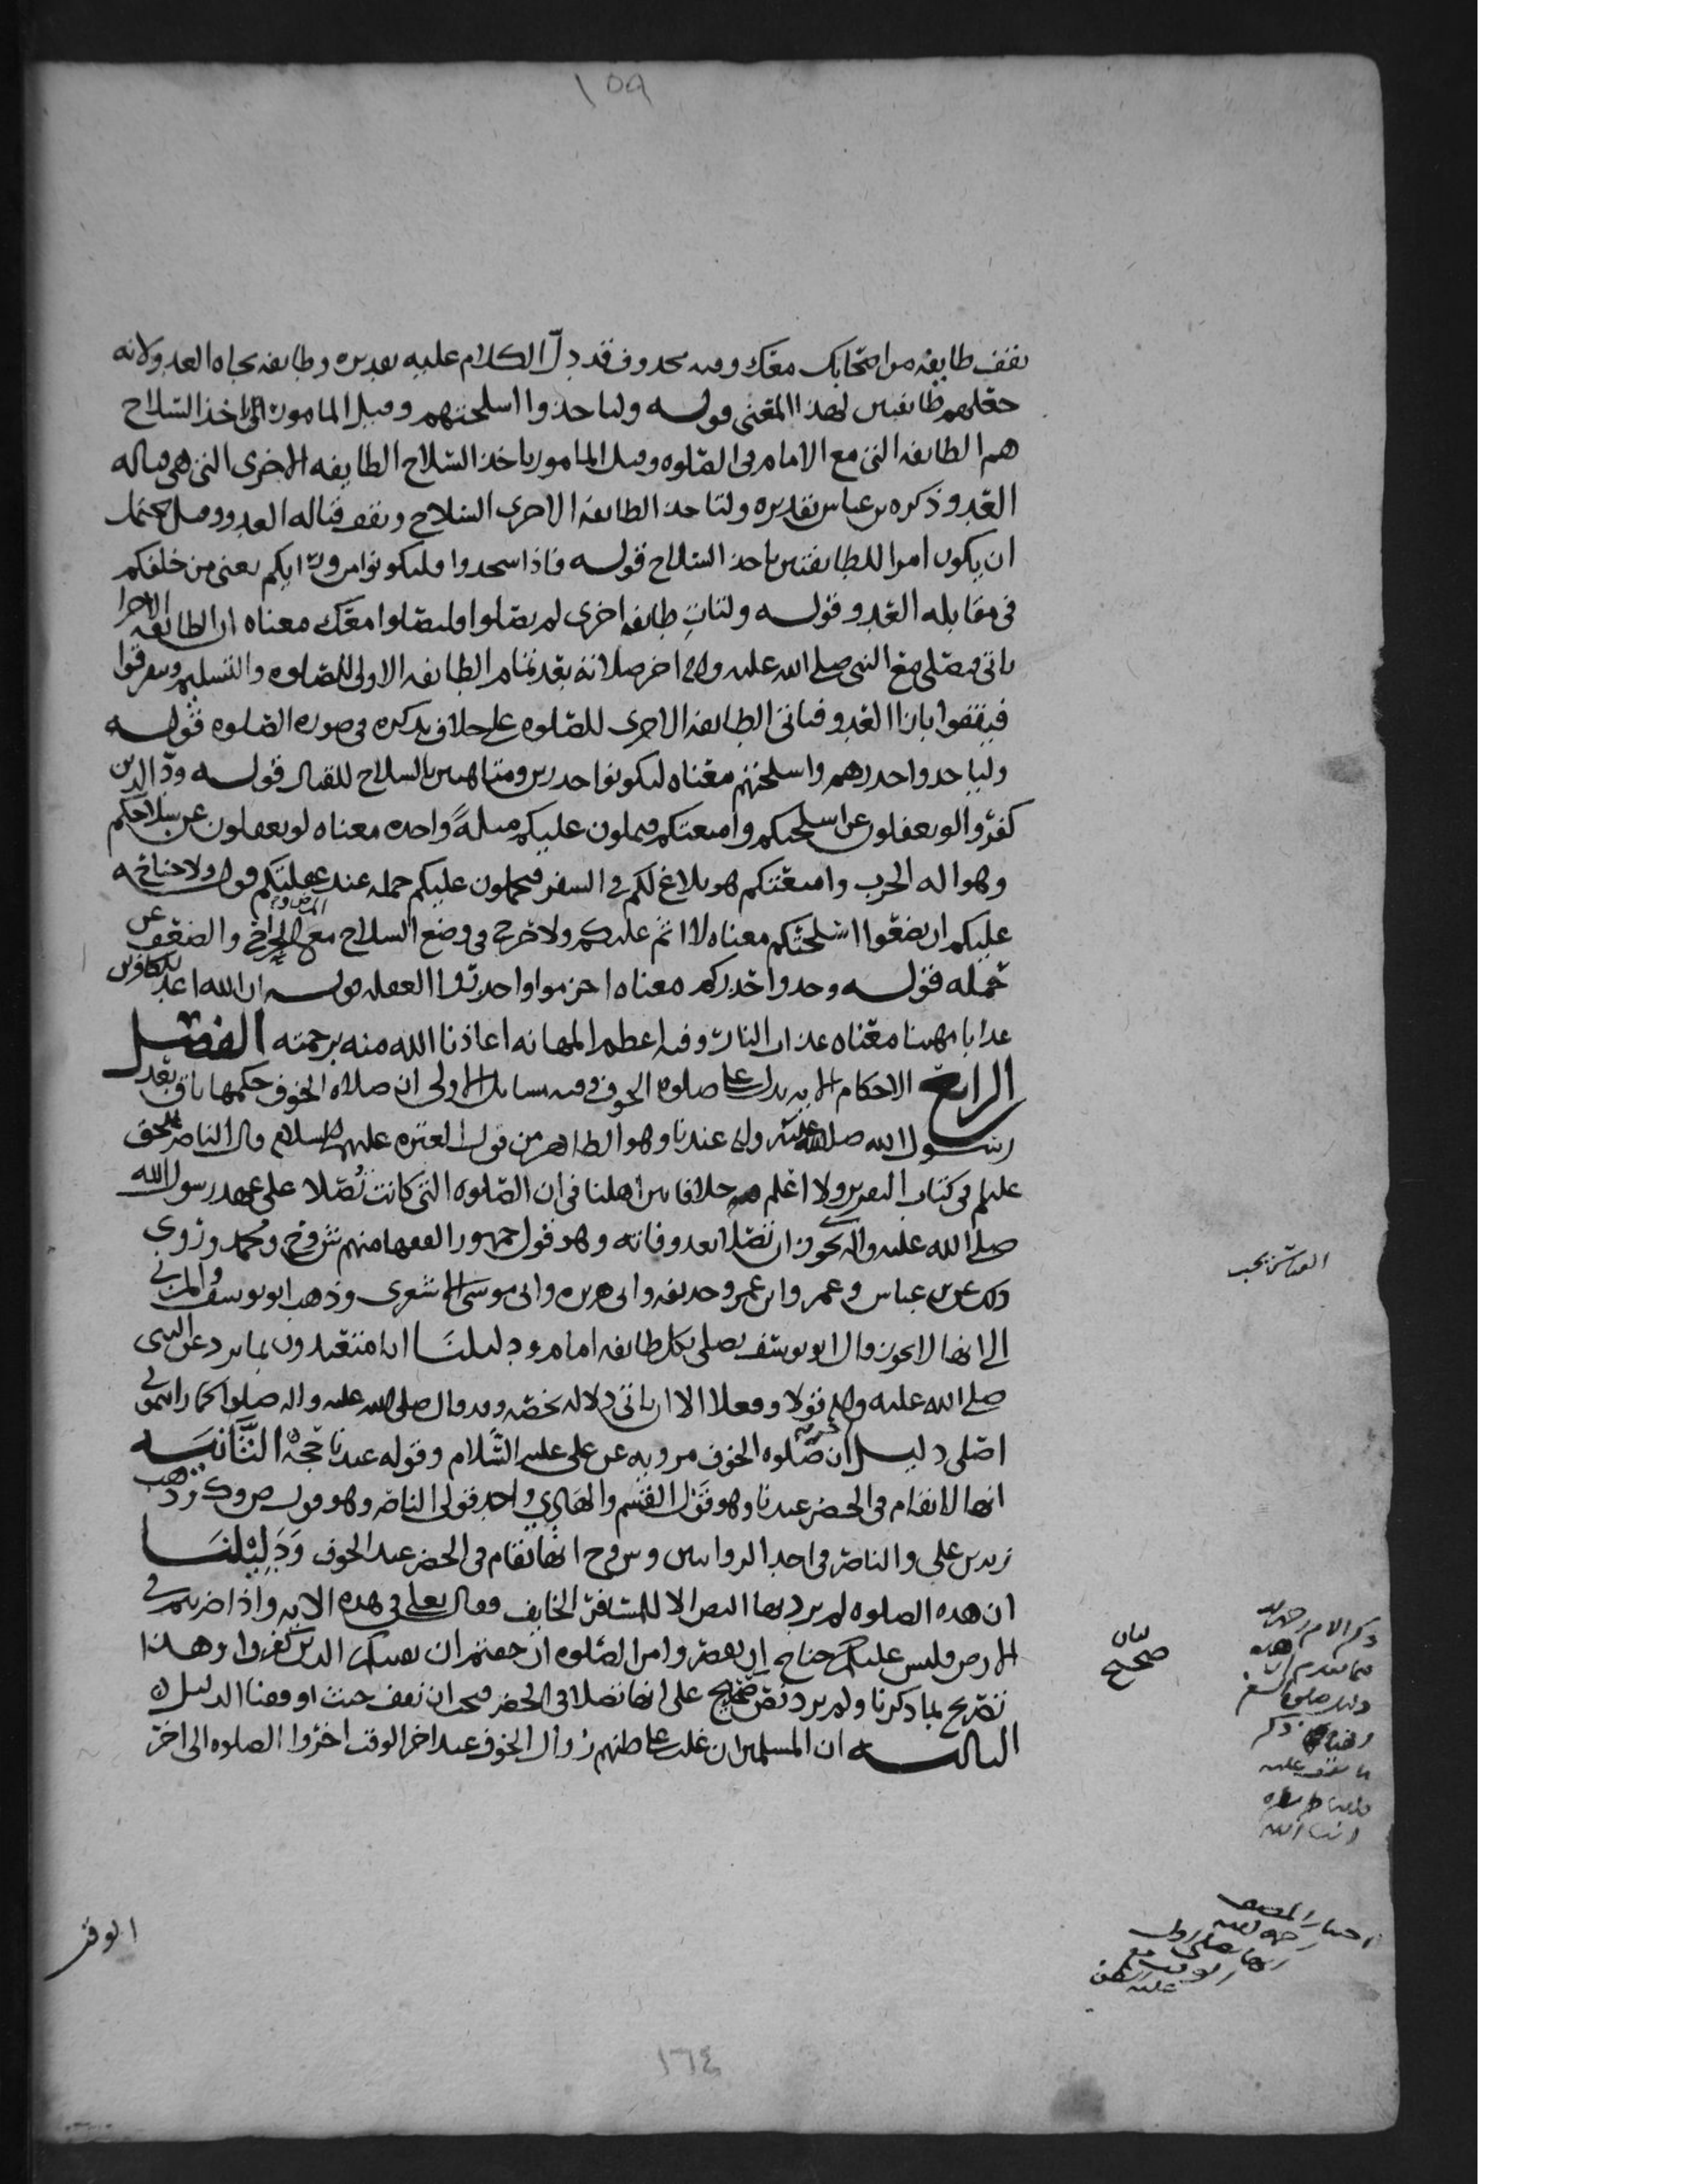 ١٥٩
تقف طايفه من اصحابك معك وفيه محذوف قد دلّ الكلام عليه تقديره وطايفه تجاه العدو ولانه
جعلهم طايفتين لهذا المعنى قوله ولياخذوا اسلحتهم وقيل المامور اخذ السّلاح
هم الطايفه التي مع الامام في الصّلوه وقيل المامور باخذ السّلاح الطايفه الاخرى التي هي قباله
العدو وذكره بن عباس تقديره ولتاخذ الطايفه الاخرى السّلاح وتقف قباله العدو وقيل يحتمل
ان يكون امرا للطايفتين باخذ السّلاح قوله فاذا سجدوا فليكونوا من ورايكم يعني من خلفكم
في مقابله العدو وقوله ولتات طايفه اخرى لم يصلوا فليصلوا معك معناه ان الطايفه الاخرا
تاتي فتصلي مع النبي صلى الله عليه واله اخر صلاته بعد تمام الطايفه الاولى للصّلوه والتسليم وينصرفوا
فيقفوا بازا العدو فتاتي الطايفه الاخرى للصّلوه على خلاف نذكره في صوره الصّلوه قوله
ولياخذوا حذرهم واسلحتهم معناه ليكونوا حذرين ومتاهبين بالسلاح للقتال قوله ودّ الذين
كفروا لو تغفلون عن اسلحتكم وامتعتكم فيملون عليكم ميلةً واحده معناه لو تغفلون عن سلاحكم
وهو اله الحرب وامتعتكم هو بلاغ لكم في السفر فيحملون عليكم حمله عند غفلتكم قوله ولا جناح
عليكم ان تضعوا اسلحتكم معناه لا اثم عليكم ولا حرج في وضع السلاح مع الجراح والضعف عن
حمله قوله وخذوا حذركم معناه احزموا واحذروا الغفله قوله ان الله اعد للكافرين
عذابا مهينا معناه عذاب النار وفيه اعظم المهانه اعاذنا الله منه برحمته الفصل
الرابع الاحكام الايه تدل على صلوه الخوف وفيه مسايل الاولى ان صلاه الخوف حكمها باق بعد
رسول الله صلى الله عليه واله عندنا وهو الظاهر من قول العتره عليهم السلام قال الناصر للحق
عليلم في كتاب ولا اعلم خلافا بين اهلنا في ان الصّلوه التي كانت تُصّلا على عهد رسول الله
صلى الله عليه واله يجوز ان تصّلا بعد وفاته وهو قول جمهور الفقها منهم ش وح ومحمد وروي
ذلك عن بن عباس وعمر وابن عمر وحذيفه وابي هريره وابي موسى الاشعري وذهب ابو يوسف والمزني
الى انها لا تجوز وقال ابو يوسف يصلى بكل طايفه امام ودليلنا انا متعبدون بما يرد عن النبي
صلى الله عليه واله قولا وفعلا الا ان ياتي دلاله تخصّه وقد قال صلى الله عليه واله صلوا كما رايتموني
اصّلي دليل ان صّلوه الخوف مرويه عن علي عليه السّلام وقوله عندنا حجّه الثّانيه
انها لا تقام في الحضر عندنا وهو قول القسم والهادي واحد قولي الناصر وهو قول ص وك وذهب
زيد بن علي والناصر في احد الروايتين وش وح انها تقام في الحضر عند الخوف وَدَلِيْلنَا
ان هذه الصلوه لم يرد بها النص الا للمسافر الخايف فقال تعالى في هذه الايه واذا ضربتم في
الارض فليس عليكم جناح ان تقصروا من الصّلوه ان خفتم ان يفتنكم الذين كفروا وهذا
تصريح بما ذكرنا ولم يرد نصّ صحيح على انها تصلا في الحضر فيجب ان نقف حيث اوقفنا الدليل
الثالثه ان المسلمين ان غلب على ظنهم زوال الخوف عند اخر الوقت اخّروا الصلوه الى اخر
الوقت
بيان
صحيح
١٦٤